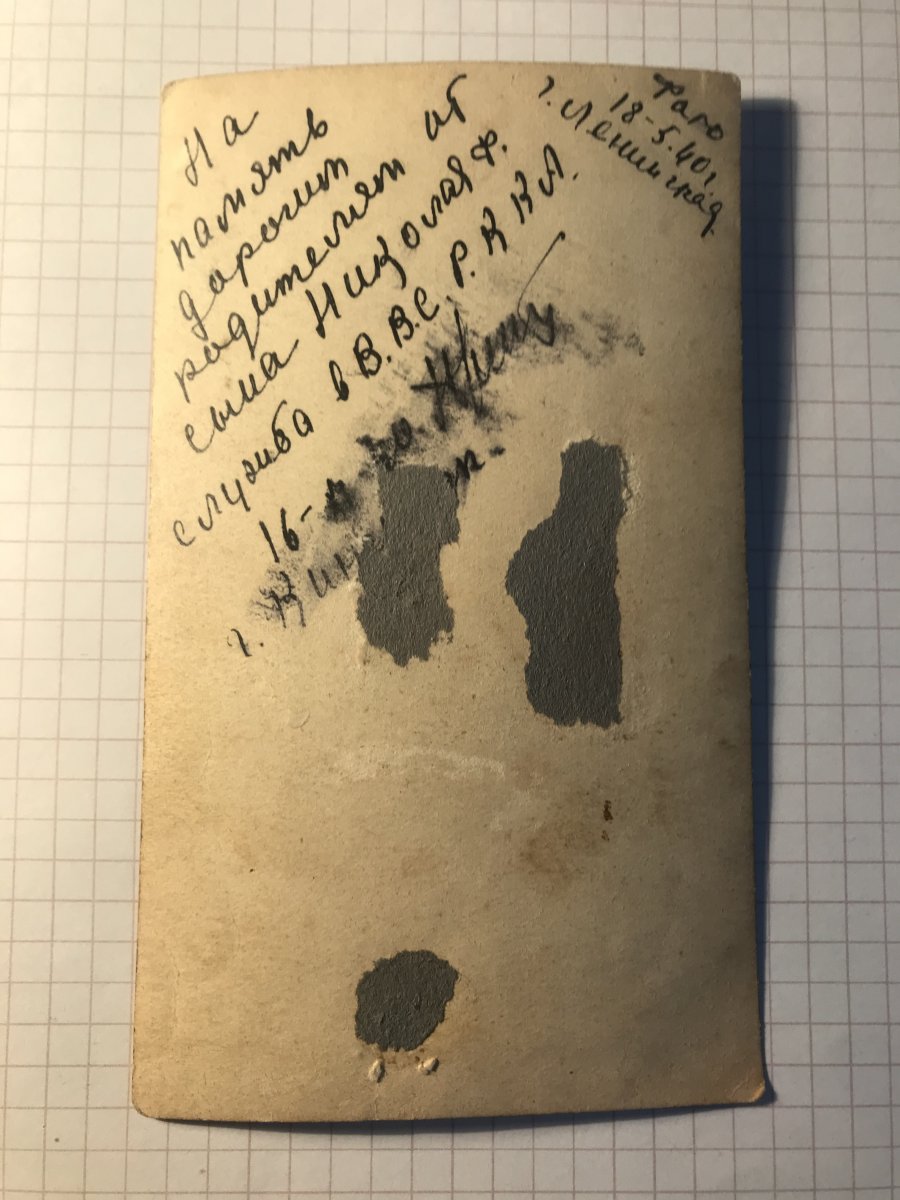 На
память
дорогим
родителям от
сына Николая Ф.
служба в В.В.С. Р.К.К.А.
16-
г.
Фото
18-5.40г
г. Ленинград